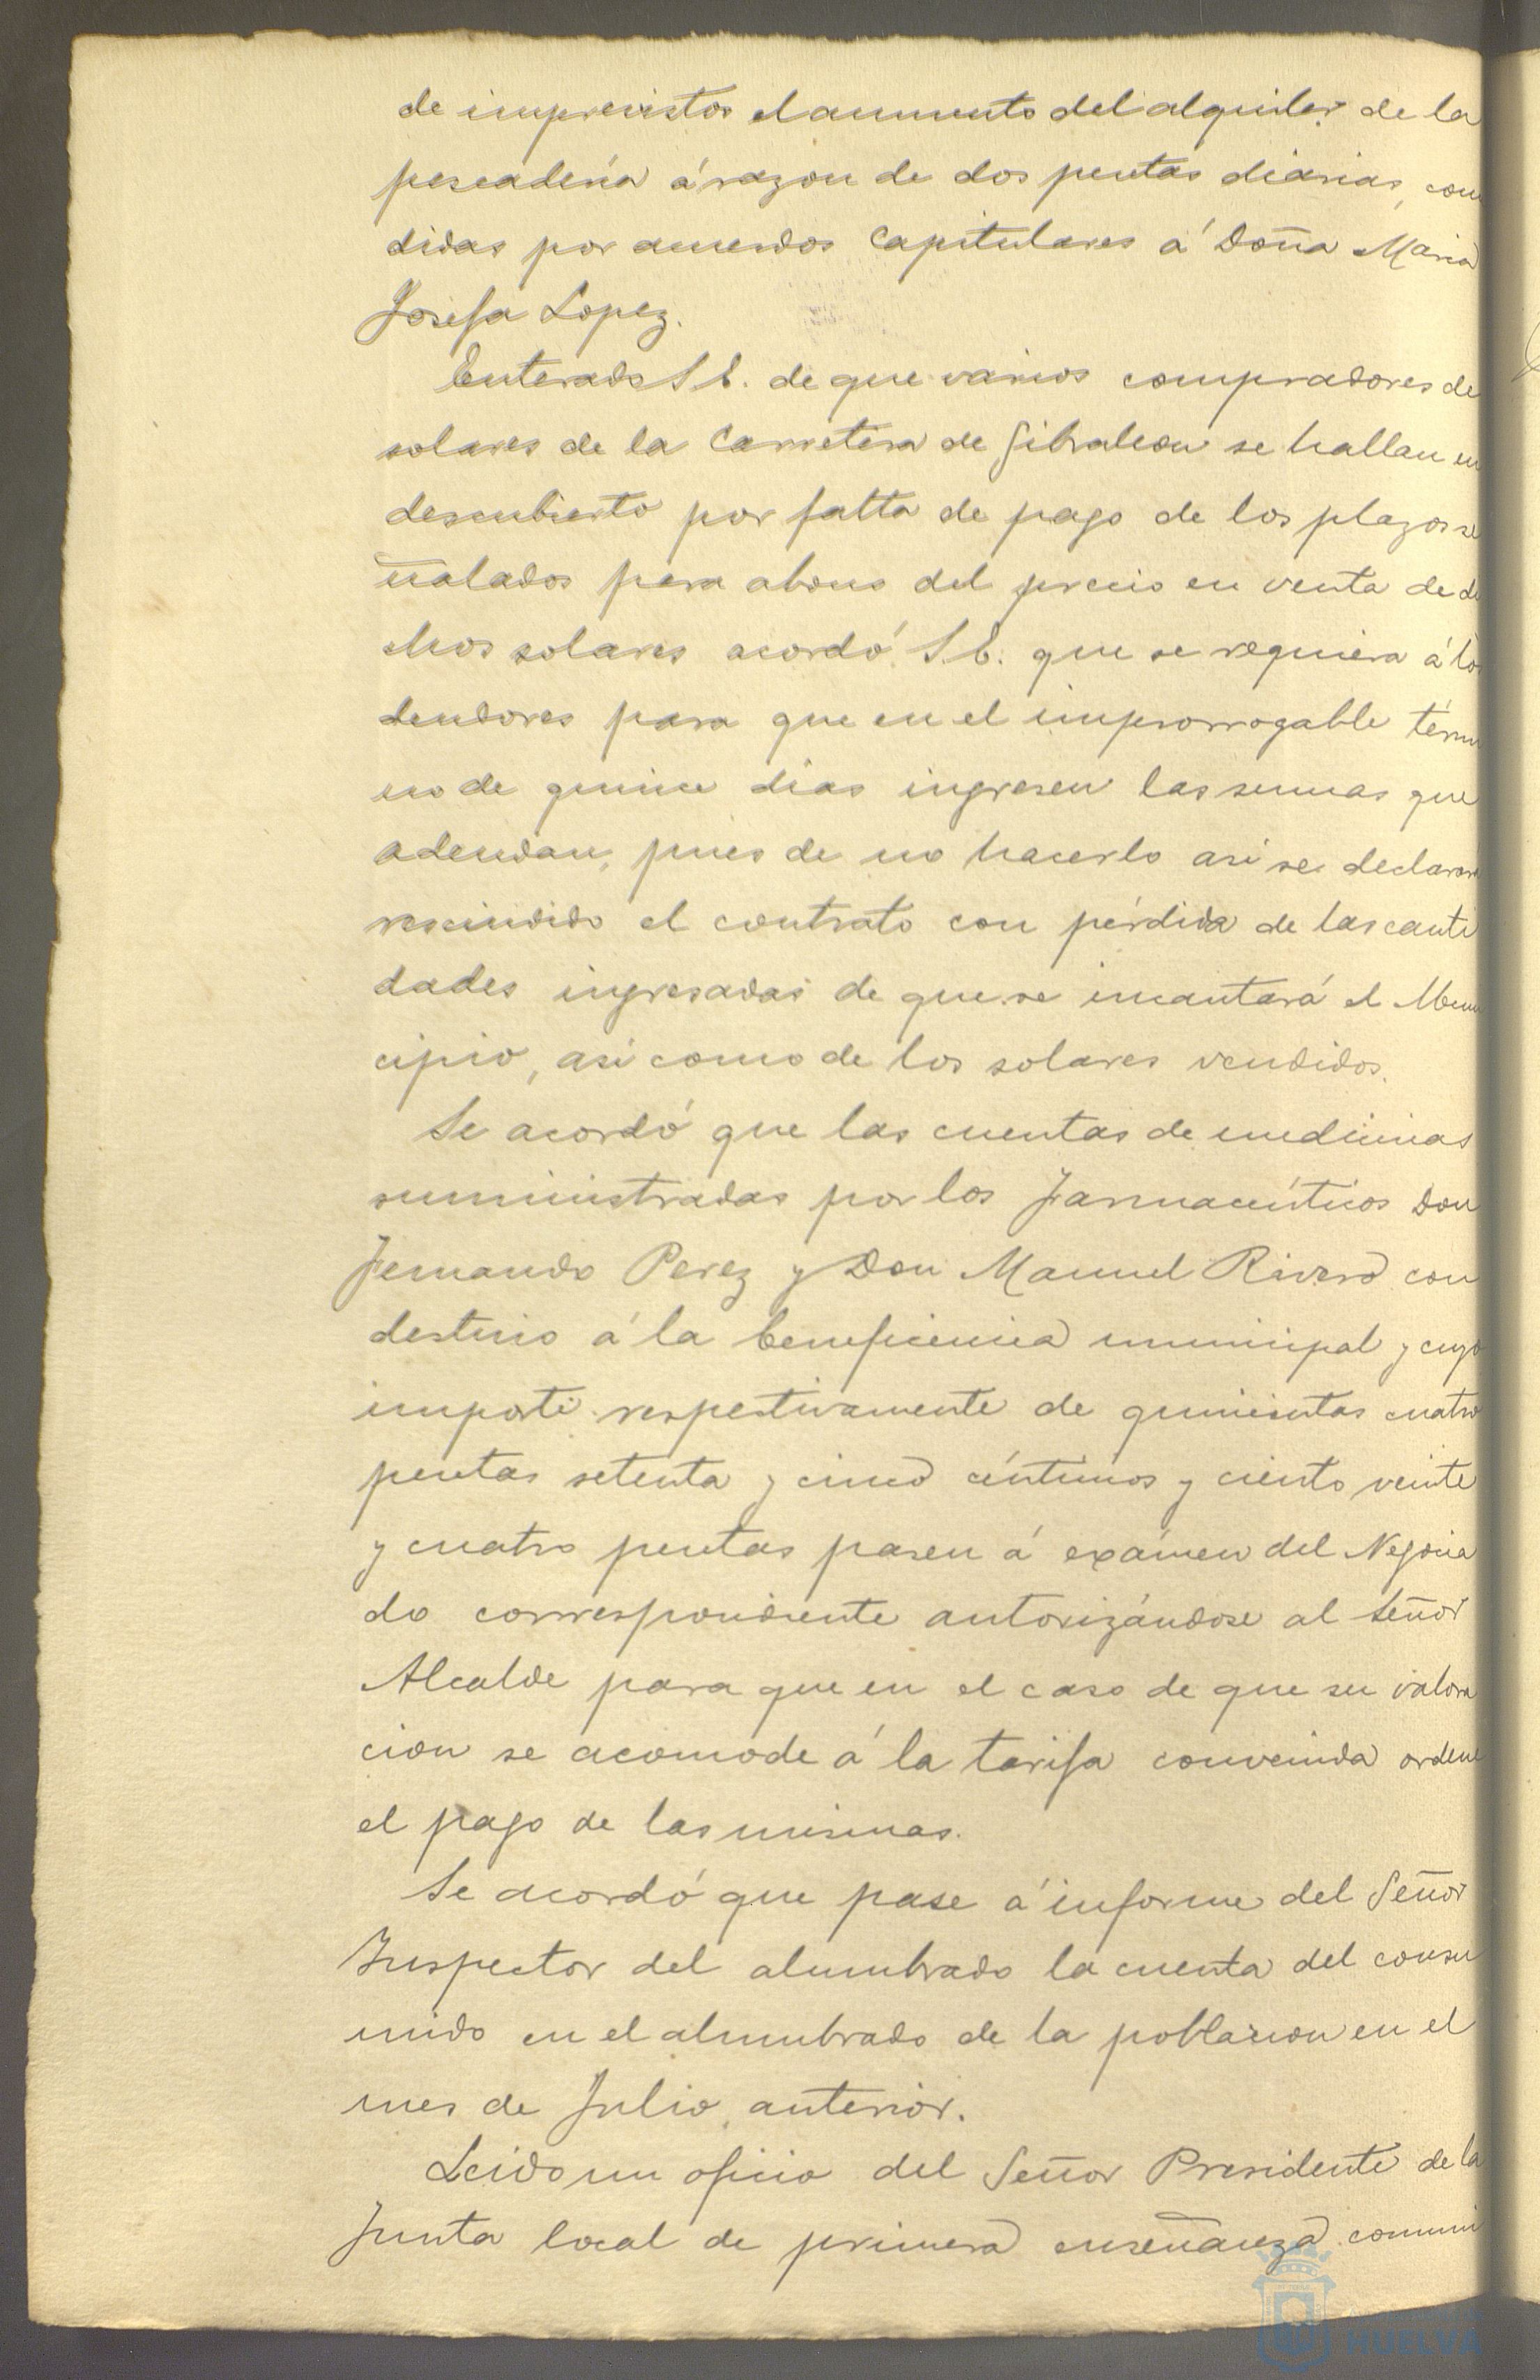 de imprevistos el aumento del alquiler de la
pescadería á razon de dos pesetas diarias, con
didas por acuerdos Capitulares á Doña Maria
Josefa Lopez.
Enterado S. E. de que varios compradores de
solares de la Carretera de Gibraleon se hallan en
descubierto por falta de pago de los plazos se
ñalados para abono del precio en venta de di
chos solares acordó S. E. que se requiera á los
deudores para que en el improrrogable térmi
no de quince dias ingresen las sumas que
adeudan, pues de no hacerlo asi se declarará
rescindido el contrato con pérdida de las canti
dades ingresadas de que se incautará el Muni
cipio, asi como de los solares vendidos.
Se acordó que las cuentas de medicinas
suministradas por los Farmacéuticos Don
Fernando Perez y Don Manuel Rivero con
destino á la beneficencia municipal y cuyo
importe respectivamente de quinientas cuatro
pesetas setenta y cinco céntimos y ciento veinte
y cuatro pesetas pasen á exámen del Negocia
do correspondiente autorizándose al Señor
Alcalde para que en el caso de que su valora
cion se acomode á la tarifa convenida ordene
el pago de las mismas.
Se acordó que pase á informe del Señor
Inspector del alumbrado la cuenta del consu
mido en el alumbrado de la poblacion en el
mes de Julio anterior.
Leido un oficio del Señor Presidente de la
Junta local de primera enseñanza comuni
HUELVA